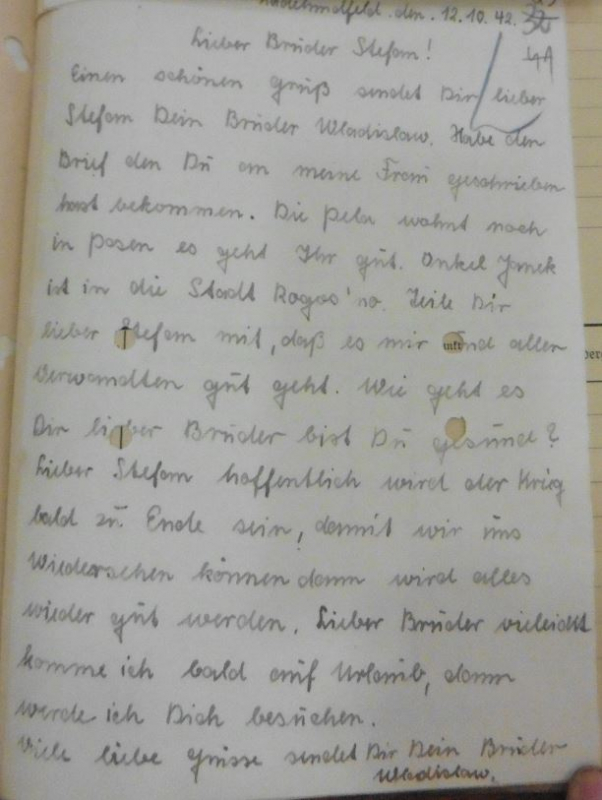 den. 12.10.42.
4A
Lieber Brüder Stefam!
Einen schönen grüß sendet Dir lieber
Stefam Dein Brüder Wladislaw. Habe den
Brief den Dü am meine Fraü geschrieben
hast bekommen. Die pela wohnt noch
in posen es geht Ihr güt. Onkel Janek
ist in die Stadt Rogos'no. Teile Dir
lieber Stefam mit, daß es mir ünd allen
Verwandten güt geht. Wie geht es
Dir lieber Brüder bist Dü gesünd?
Lieber Stefam hoffentlich wird der Krieg
bald zü Ende sein, damit wir üns
Wiedersehen können dann wird alles
wieder güt werden. Lieber Brüder vieleicht
komme ich bald aüf Urlaüb, dann
werde ich Dich besüchen.
Viele liebe grüsse sendet Dir Dein Brüder
Wladislaw.